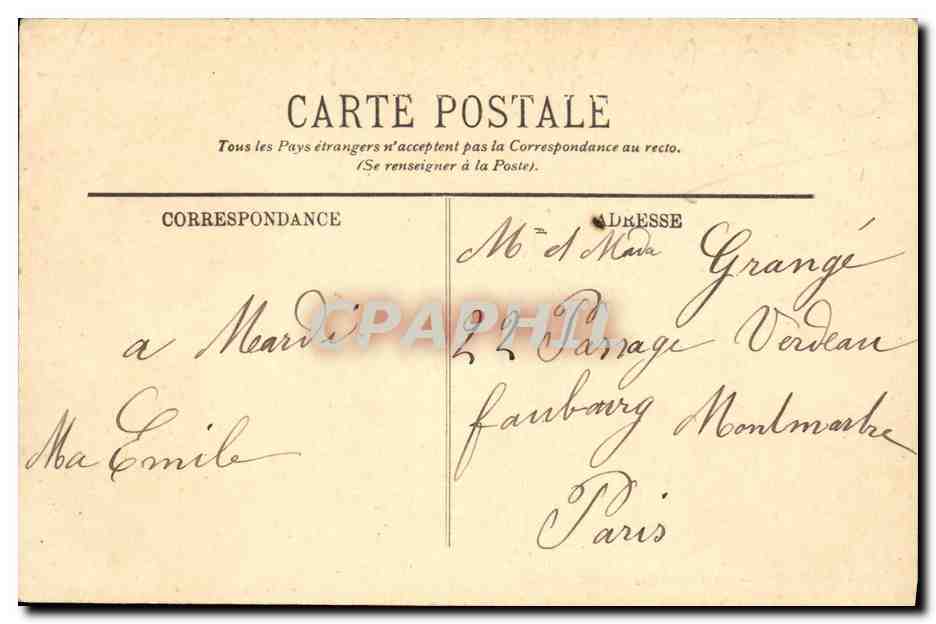 CARTE POSTALE
Tous les Pays étrangers n'acceptent pas la Correspondance au recto.
(Se renseigner à la Poste).
CORRESPONDANCE
a Mardi
Ma Emile
ADRESSE
Mr et Mada Grangé
22 Passage Verdeau
faubourg Montmartre
Paris
CPAPHIL